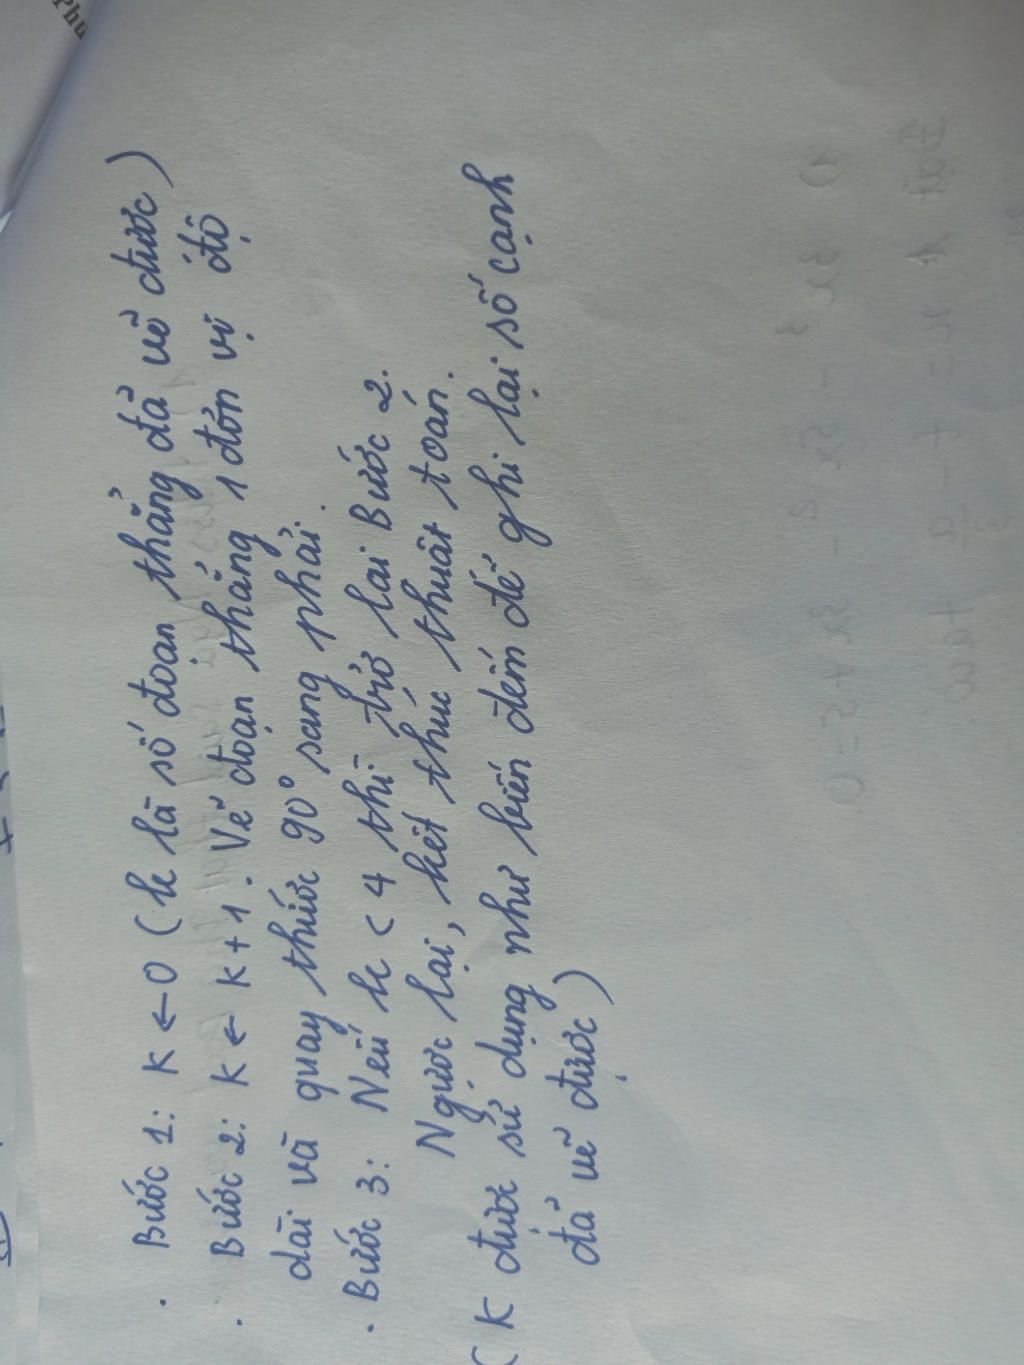 . Bước 1: K ← 0 (k là số đoạn thẳng đã vẽ được)
. Bước 2: K ← K + 1. Vẽ đoạn thẳng 1 đơn vị độ
dài và quay thước 90° sang phải.
. Bước 3: Nếu k < 4 thì trở lại Bước 2.
Ngược lại, kết thúc thuật toán.
(K được sử dụng như biến đếm để ghi lại số cạnh
đã vẽ được)
Phu